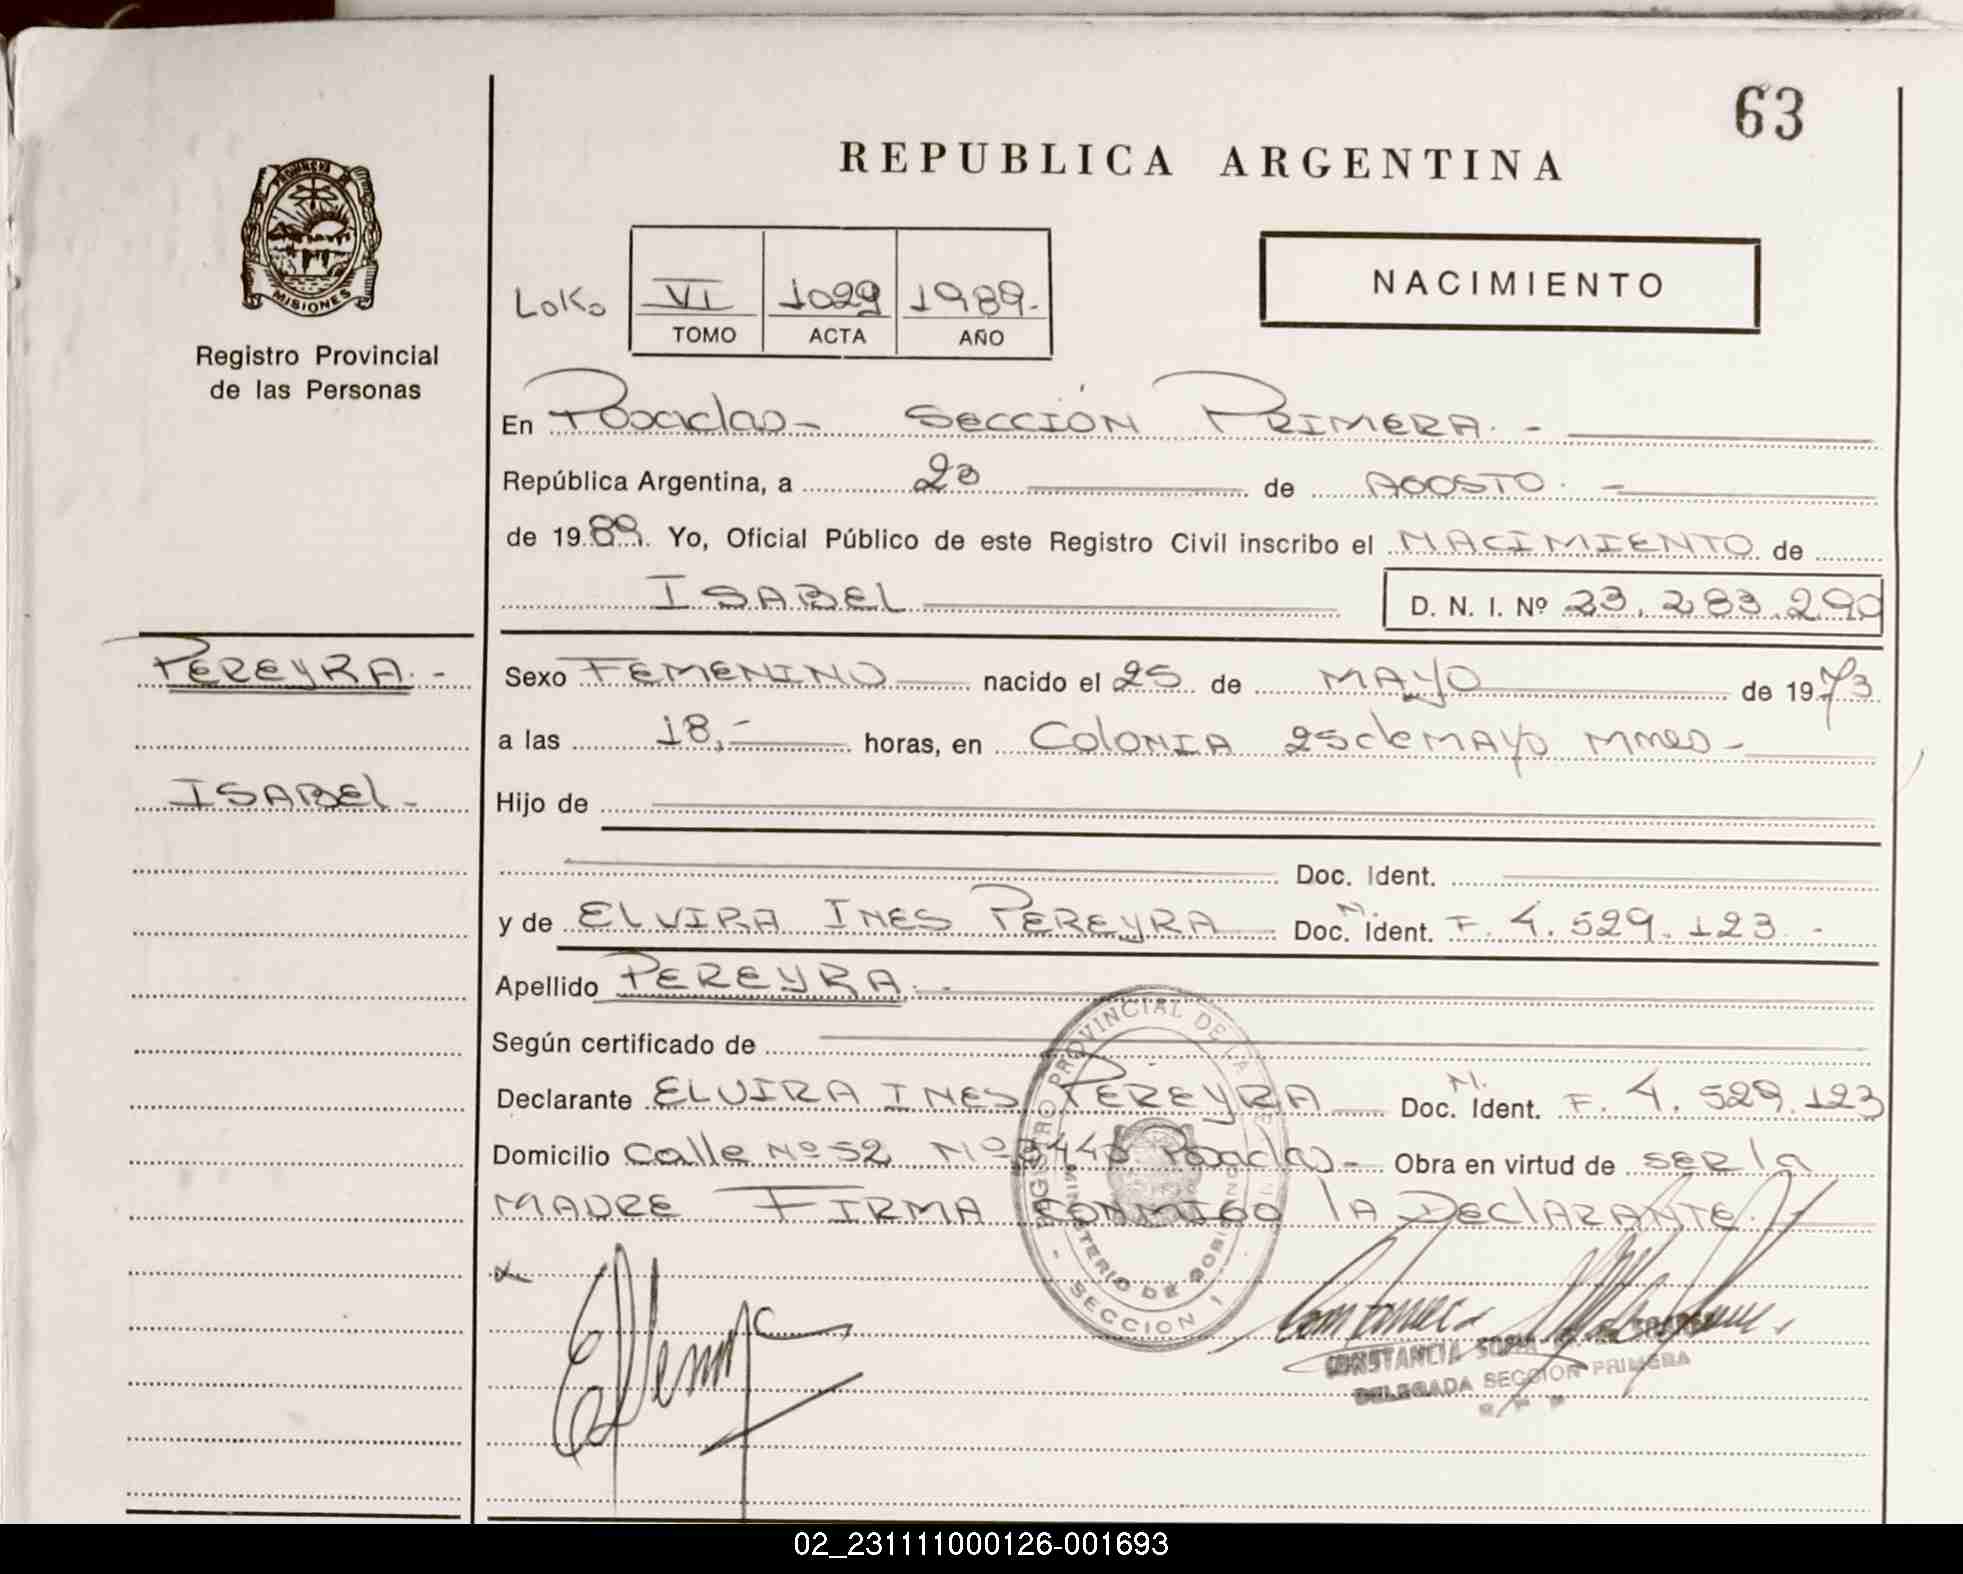 63
REPUBLICA ARGENTINA
PROVINCIA DE
MISIONES
Registro Provincial
de las Personas
LOKO
VI 1029 1989.-
TOMO ACTA AÑO
NACIMIENTO
En Posadas- SECCIÓN PRIMERA.-
República Argentina, a 23 de AGOSTO.-
de 1989. Yo, Oficial Público de este Registro Civil inscribo el NACIMIENTO de
ISABEL D. N. I. Nº 23.283.290
PEREYRA.-
Sexo FEMENINO nacido el 25 de MAYO de 1973
a las 18,- horas, en COLONIA 25 de MAYO Mnes-
ISABEL-
Hijo de
Doc. Ident.
y de ELVIRA INES PEREYRA Doc. N. Ident. F. 4.529.123.-
Apellido PEREYRA.-
Según certificado de
Declarante ELVIRA INES PEREYRA Doc. N. Ident. F. 4.529.123
Domicilio Calle Nº 52 Nº Posadas- Obra en virtud de SER la
MADRE FIRMA CONMIGO LA DECLARANTE.-
REGISTRO PROVINCIAL DE LAS
MINISTERIO DE GOBIERNO
- SECCION 1 -
CONSTANCIA SOFIA
DELEGADA SECCION PRIMERA
02_231111000126-001693